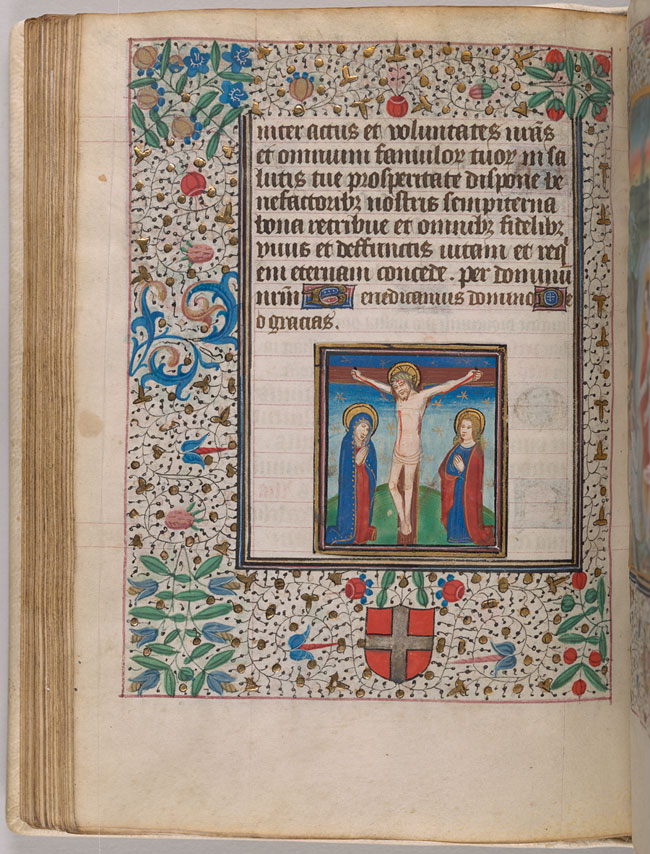 inter actus et voluntates nr̄as
et omnium famulor tuor in sa
lutis tue prosperitate dispone be
nefactoribz nostris sempiterna
bona retribue et omnibz fidelibz
vivis et deffunctis vitam et req̄
em eternam concede. per dominū
nr̄m B enedicamus domino De
o gracias.